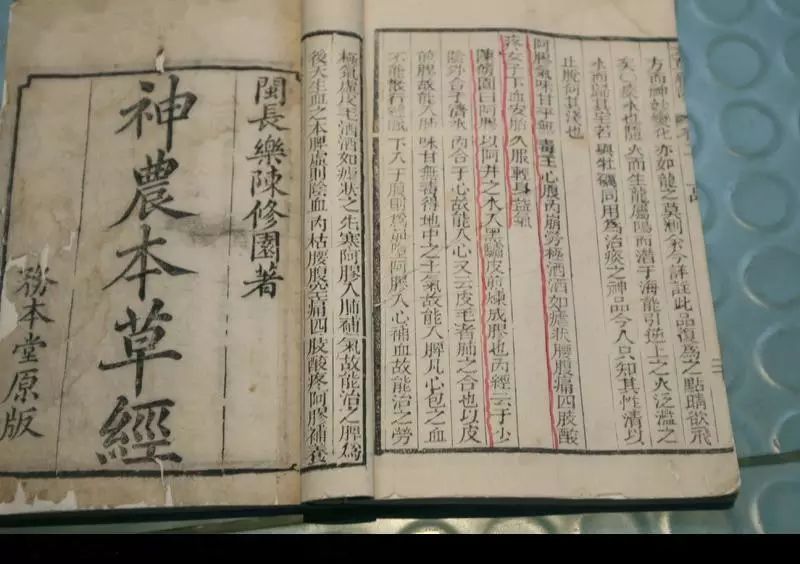 方而神妙變化亦如龍之莫測余今詳註此品復為之點睛欲飛
矣○痰水也隨火而生龍屬陽而潛于海能引逆上之火泛濫之
水而歸其宅若與牡礪同用為治痰之神品今人只知其性清以
止脫何其淺也
阿膠氣味甘平無毒主心腹內崩勞極洒洒如瘧狀腰腹痛四肢酸
疼女子下血安胎久服輕身益氣
陳修園曰阿膠以阿井之水入黑驢皮煎煉成膠也內經云手少
陰外合于濟水內合于心故能入心又云皮毛者肺之合也以皮
煎膠故能入肺味甘無毒得地中之土氣故能入脾凡心包之血
不能散行經脈下入于腹則為崩墮阿膠入心補血故能治之勞
極氣虛皮毛洒洒如瘧狀之先寒阿膠入肺補氣故能治之脾為
後天生血之本脾虛則陰血內枯腰腹空痛四肢酸疼阿膠補養
閩長樂陳修園著
神農本草經
務本堂原版